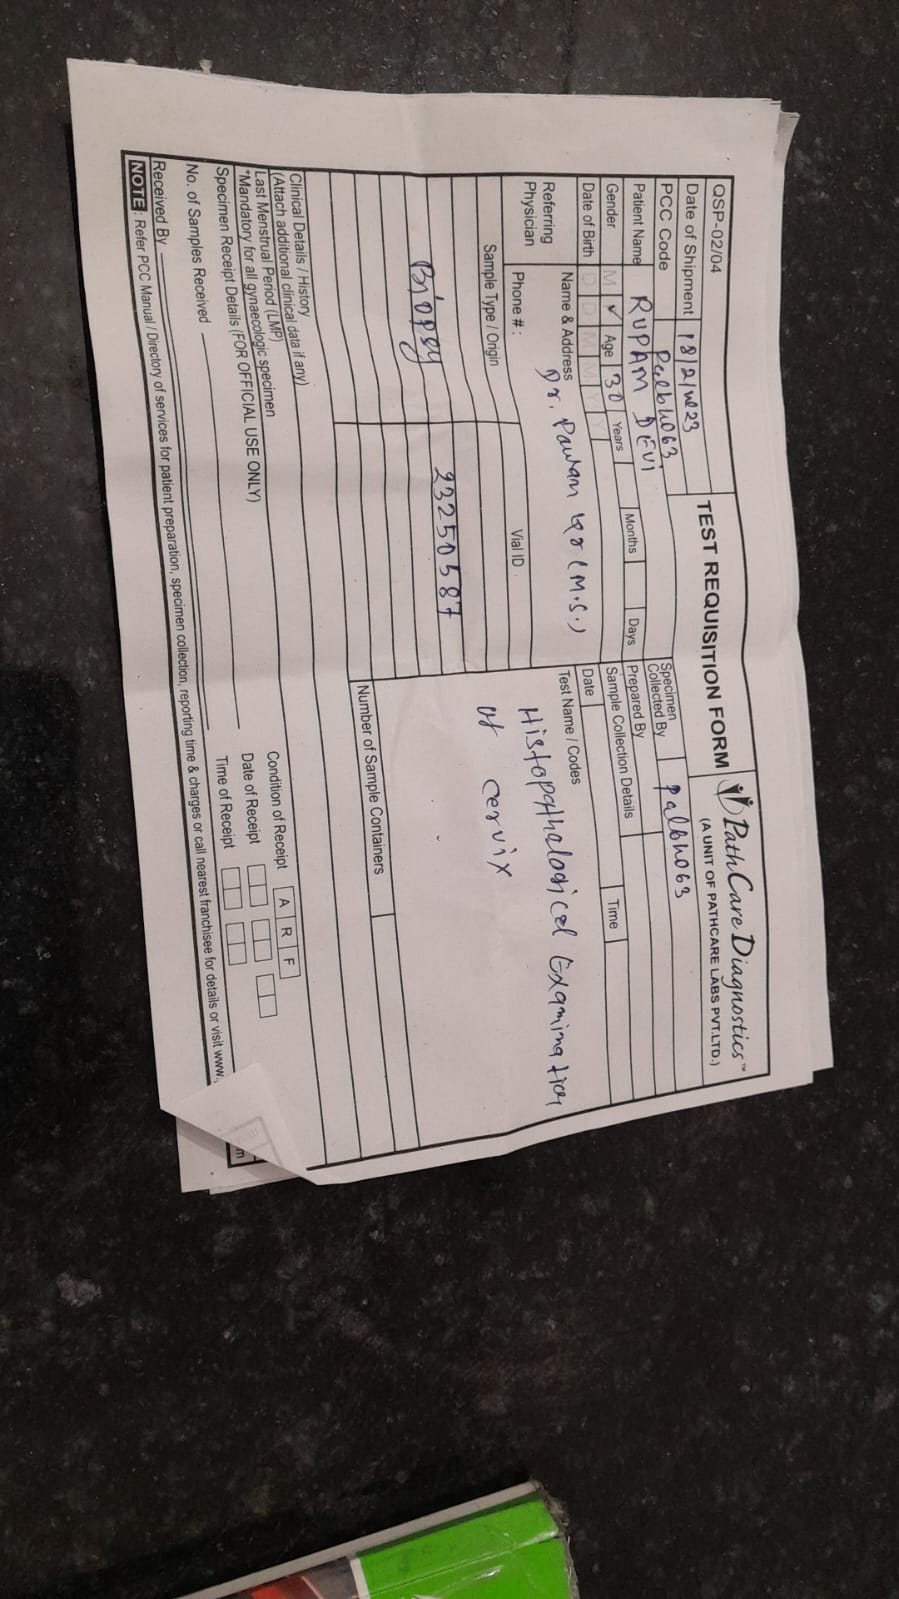 QSP-02/04
TEST REQUISITION FORM
PathCare Diagnostics™
(A UNIT OF PATHCARE LABS PVT.LTD.)
Date of Shipment 18/2/2023
PCC Code Palbh063
Specimen Collected By Palbh063
Patient Name RUPAM DEVI
Prepared By
Gender M ✓ Age 30 Years Months Days
Sample Collection Details
Date of Birth D D M M Y Y
Date Time
Referring Physician
Name & Address Dr. Pawan kr (M.S.)
Phone # :
Test Name / Codes
Histopathological Examination
of cervix
Sample Type / Origin Vial ID
23250587
Biopsy
Number of Sample Containers
Clinical Details / History
(Attach additional clinical data if any)
Last Menstrual Period (LMP)
*Mandatory for all gynaecologic specimen
Specimen Receipt Details (FOR OFFICIAL USE ONLY)
Condition of Receipt A R F
Date of Receipt
No. of Samples Received
Time of Receipt
Received By
NOTE : Refer PCC Manual / Directory of services for patient preparation, specimen collection, reporting time & charges or call nearest franchisee for details or visit www.